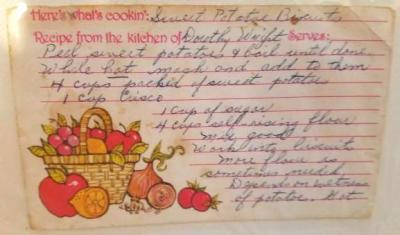 Here's what's cookin': Sweet Potatoe Biscuits
Recipe from the kitchen of Dorothy Wright Serves:
Peel sweet potatoes & boil until done.
While hot mash and add to them
4 cups packed of sweet potatoes
1 cup Crisco
1 cup of sugar
4 cups self-rising flour
Mix good
Work into biscuits
More flour is
sometimes needed
Depends on wetness
of potatoe. Hot